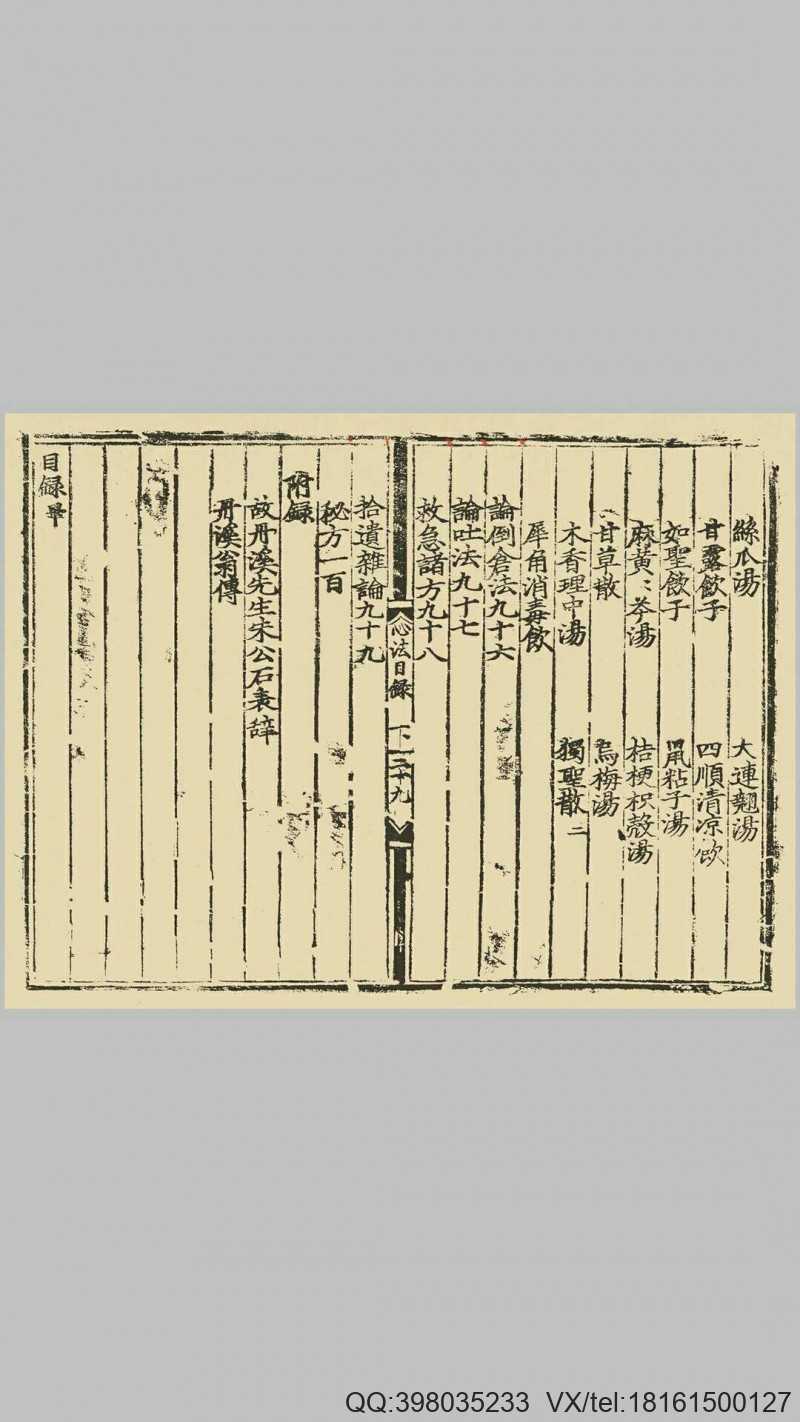 絲瓜湯 大連翹湯
甘露飲子 四順清凉飲
如聖飲子 鼠粘子湯
麻黃〻芩湯 桔梗枳殼湯
甘草散 烏梅湯
木香理中湯 獨聖散二
犀角消毒飲
論倒倉法九十六
論吐法九十七
救急諸方九十八
心法目録 下 二十九
拾遺雜論九十九
秘方一百
附録
故丹溪先生朱公石表辭
丹溪翁傳
目録畢
QQ:398035233 VX/tel:18161500127